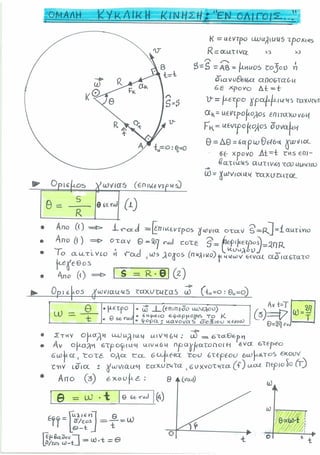 ΟΜΑΛΗ ΚΥΚΛΙΚΗ ΚΙΝΗΣΗ: "ΕΝ ΟΛΙΓΟΙΣ..."
K = κεντρο κυκλικης τροχιας
R = ακτινα " "
S = S = AB = μηκος τοξου ή
διανυθεισα αποσταση
σε χρονο Δt = t
υ = μετρο γραμμικης ταχυτητας
ακ = κεντρομολος επιταχυνση
Fκ = κεντρομολος δυναμη
θ = Δθ = σαρωθεισα γωνια
σε χρονο Δt = t της επι-
βατικης ακτινας του κινητου
ω = γωνιακη ταχυτητα
υ
B
t=t
R
ακ
Fκ
ω
K
θ
S=S
R
υ
A
t₀=0
Ορισμος γωνιας (επικεντρης)
θ = S/R θ σε rad (1)
Απο (1) ⇒ 1 rad = [επικεντρος γωνια οταν S=R] = 1 ακτινιο
Απο (1) ⇒ οταν θ=2π rad τοτε S = (περιμετρος κυκλου) = 2πR
Το ακτινιο ή rad, ως λογος (πηλικο) μηκων ειναι αδιαστατο
μεγεθος
Απο (1) ⇒ S = R·θ (2)
Ορισμος γωνιακης ταχυτητας ω (t₀=0 : θ₀=0)
ω = θ/t
μετρο
θ σε rad
ω ⊥ (επιπεδο κυκλου)
σημειο εφαρμογης το K
φορα: κανονας δεξιου χεριου
(3)
Αν t=T
θ=2π rad
ω = 2π/T
Στην ομαλη κυκλικη κινηση: ω = σταθερη
Αν ομαλη στροφικη κινηση πραγματοποιει ενα στερεο
σωμα, τοτε ολα τα σημεια του στερεου σωματος εχουν
την ιδια: γωνιακη ταχυτητα, συχνοτητα (f) και περιοδο (T)
Απο (3) εχουμε:
θ = ω·t θ σε rad (4)
εφφ = [κλιση θ/σης θ-t] = θ/t = ω
[εμβαδον θ/σης ω-t] = ω·t = θ
θ (rad)
φ
0
t
ω
ω
θ=ω·t
0
t
t